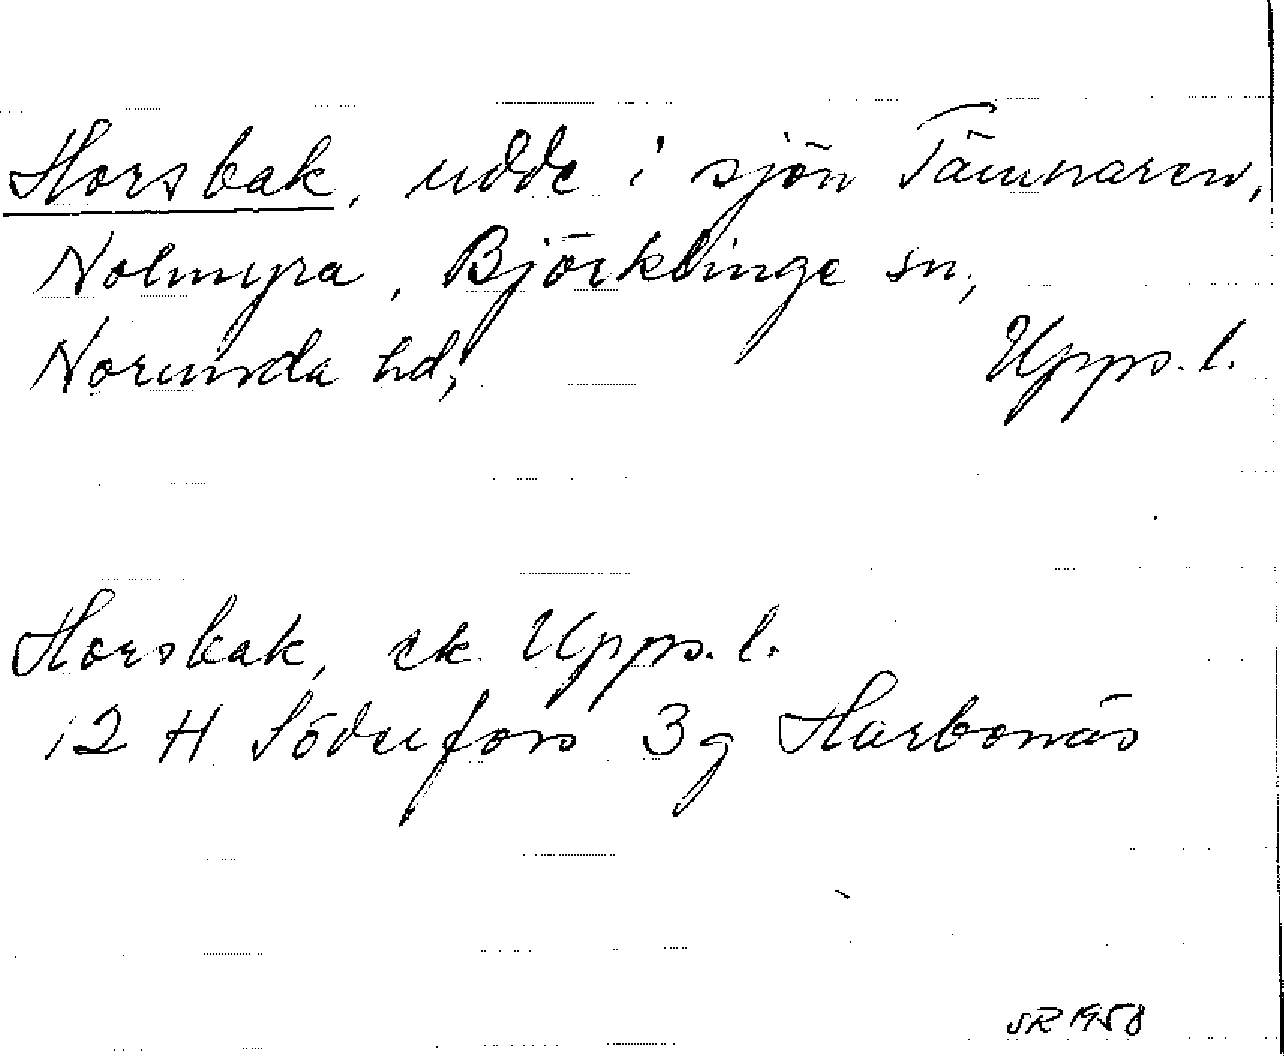 Horsbak, udde i sjön Tämnaren,
Nolmyra, Björklinge sn,
Norunda hd, Upps. l.
Horsbak, ek Upps. l.
12 H Söderfors 3g Harbonäs
SR 1958